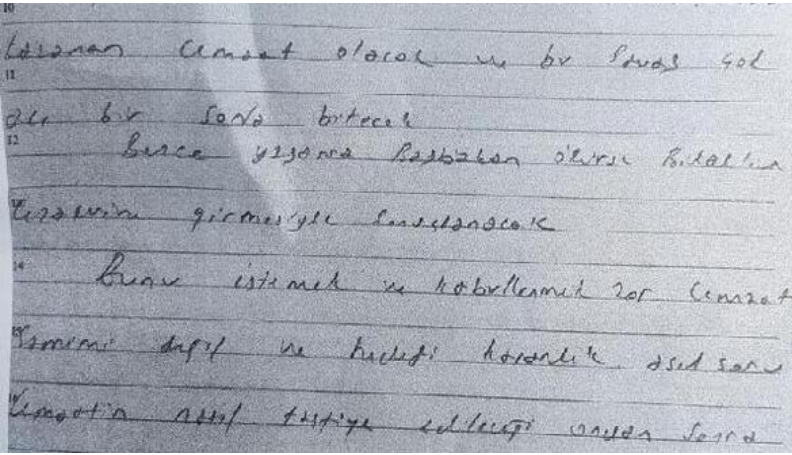 10
kazanan Cemaat olacak ve bu savaş çok
11
acı bir sonla bitecek
12
Bence yaşarsa Başbakan ölürse Bilal'in
cezaevine girmesiyle sonuçlanacak
14
Bunu istemek ve kabullenmek zor Cemaat
samimi değil ve hedefi karanlık asıl soru
Cemaatin nasıl tasfiye edileceği ondan sonra